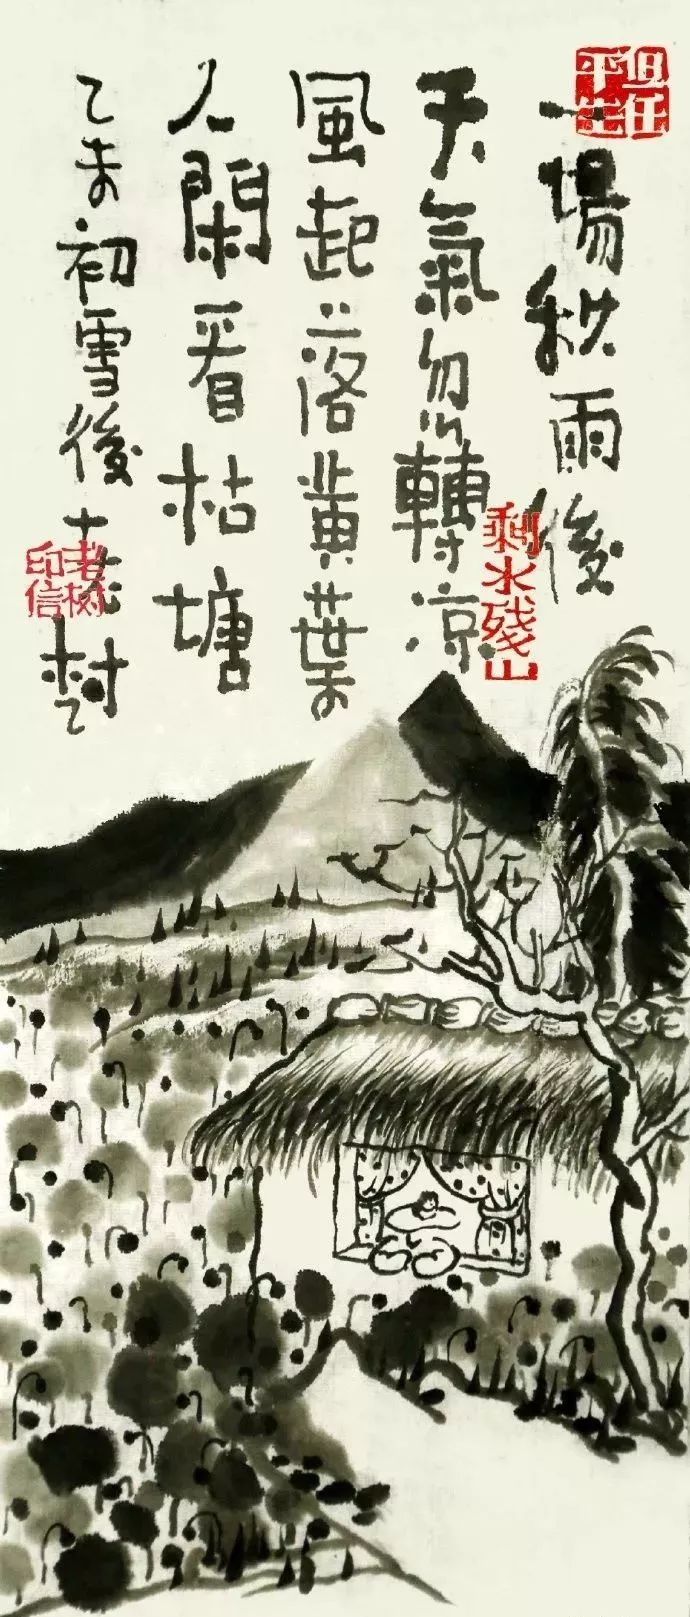 一場秋雨後
天氣忽轉凉
風起落黄葉
人閑看枯塘
乙未初雪後
任平生
剩水残山
老树印信